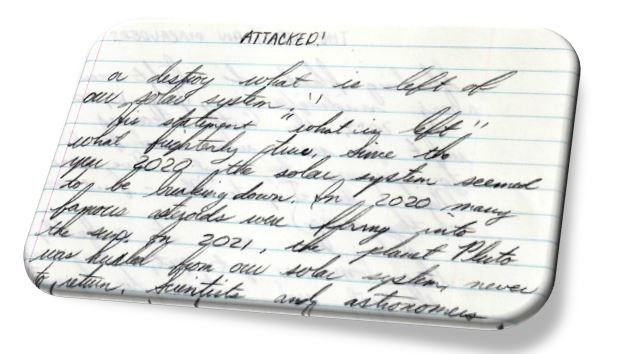 ATTACKED!
a destroy what is left of
our solar system."
his statement "what is left"
what frighteny true. Since the
year 2020 the solar system seemed
to be breaking down. In 2020 many
famous asteroids were flying into
the sun. In 2021, the planet Pluto
was hurled from our solar system, never
to return. Scientists and astronomers